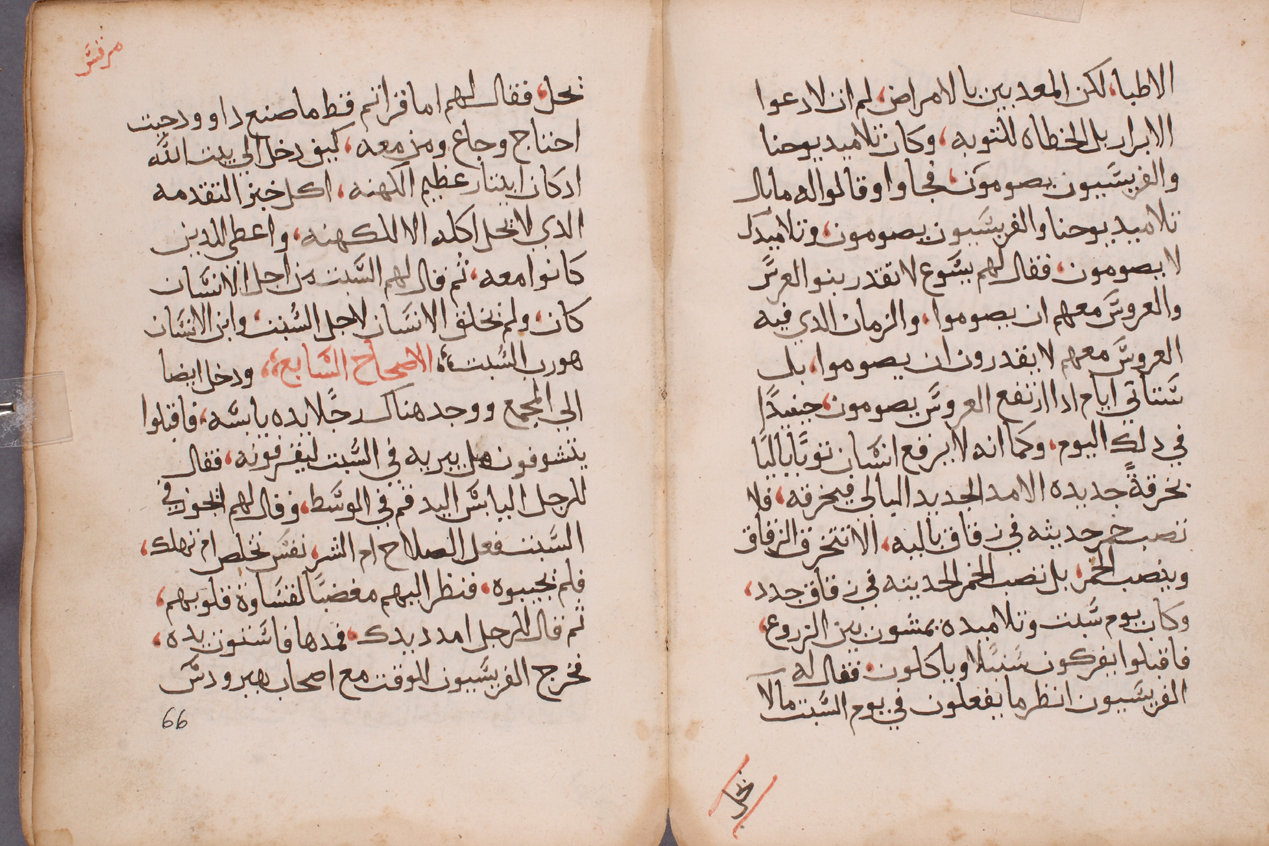 الاطبا، لكن المعدبين بالامراض، لم ات لادعوا
الابرار بل الخطاه للتوبه، وكان تلاميد يوحنا
والفريسيون يصومون، فجاوا وقالوا له ما بال
تلاميد يوحنا والفريسيون يصومون، وتلاميدك
لا يصومون، فقال لهم يسوع لا تقدر بنو العرس
والعروس معهم ان يصوموا، والزمان الدي فيه
العروس معهم لا يقدرون ان يصوموا، بل
ستاتي ايام ادا ارتفع العروس يصومون، حينيدًا
في دلك اليوم، وكما انه لا يرفع انسان توبًا باليًا
بخرقةً جديده الا مد الجديد البالي فيخرقه، فلا
تصب خمر حديثه في زقاق باليه، الا تنخرق الزقاق
وينصب الخمر، بل تصب الخمر الحديثه في زقاق جدد،
وكان يوم سبت وتلاميده يمشون بين الزروع،
فاقبلوا يفركون سنبلا وياكلون، فقال له
الفريسيون انظر ما يفعلون في يوم السبت ما لا
يحل
مرقس
يحل، فقال لهم اما قراتم قط ما صنع داوود حيت
احتاج وجاع ومن معه، كيف دخل الي بيت الله
ادكان ابيتار عظيم الكهنه، اكل خبز التقدمه
الدي لا يحل اكله الا للكهنه، واعطي للدين
كانوا معه، ثم قال لهم السبت من اجل الانسان
كان، ولم يخلق الانسان لاجل السبت، وابن الانسان
هو رب السبت، الاصحاح السابع، ودخل ايضا
الي المجمع ووجد هناك رجلا يده يابسه، فاقبلوا
يتشوفون هل يبريه في السبت ليقرفونه، فقال
للرجل اليابس اليد قم في الوسط، وقال لهم ايجوز في
السبت فعل الصلاح ام الشر، نفس تخلص ام تهلك،
فلم يجيبوه، فنظر اليهم مغضبًا لقساوة قلوبهم،
ثم قال للرجل امدد يدك، فمدها فاستوت يده،
فخرج الفريسيون للوقت مع اصحاب هيرودس
66